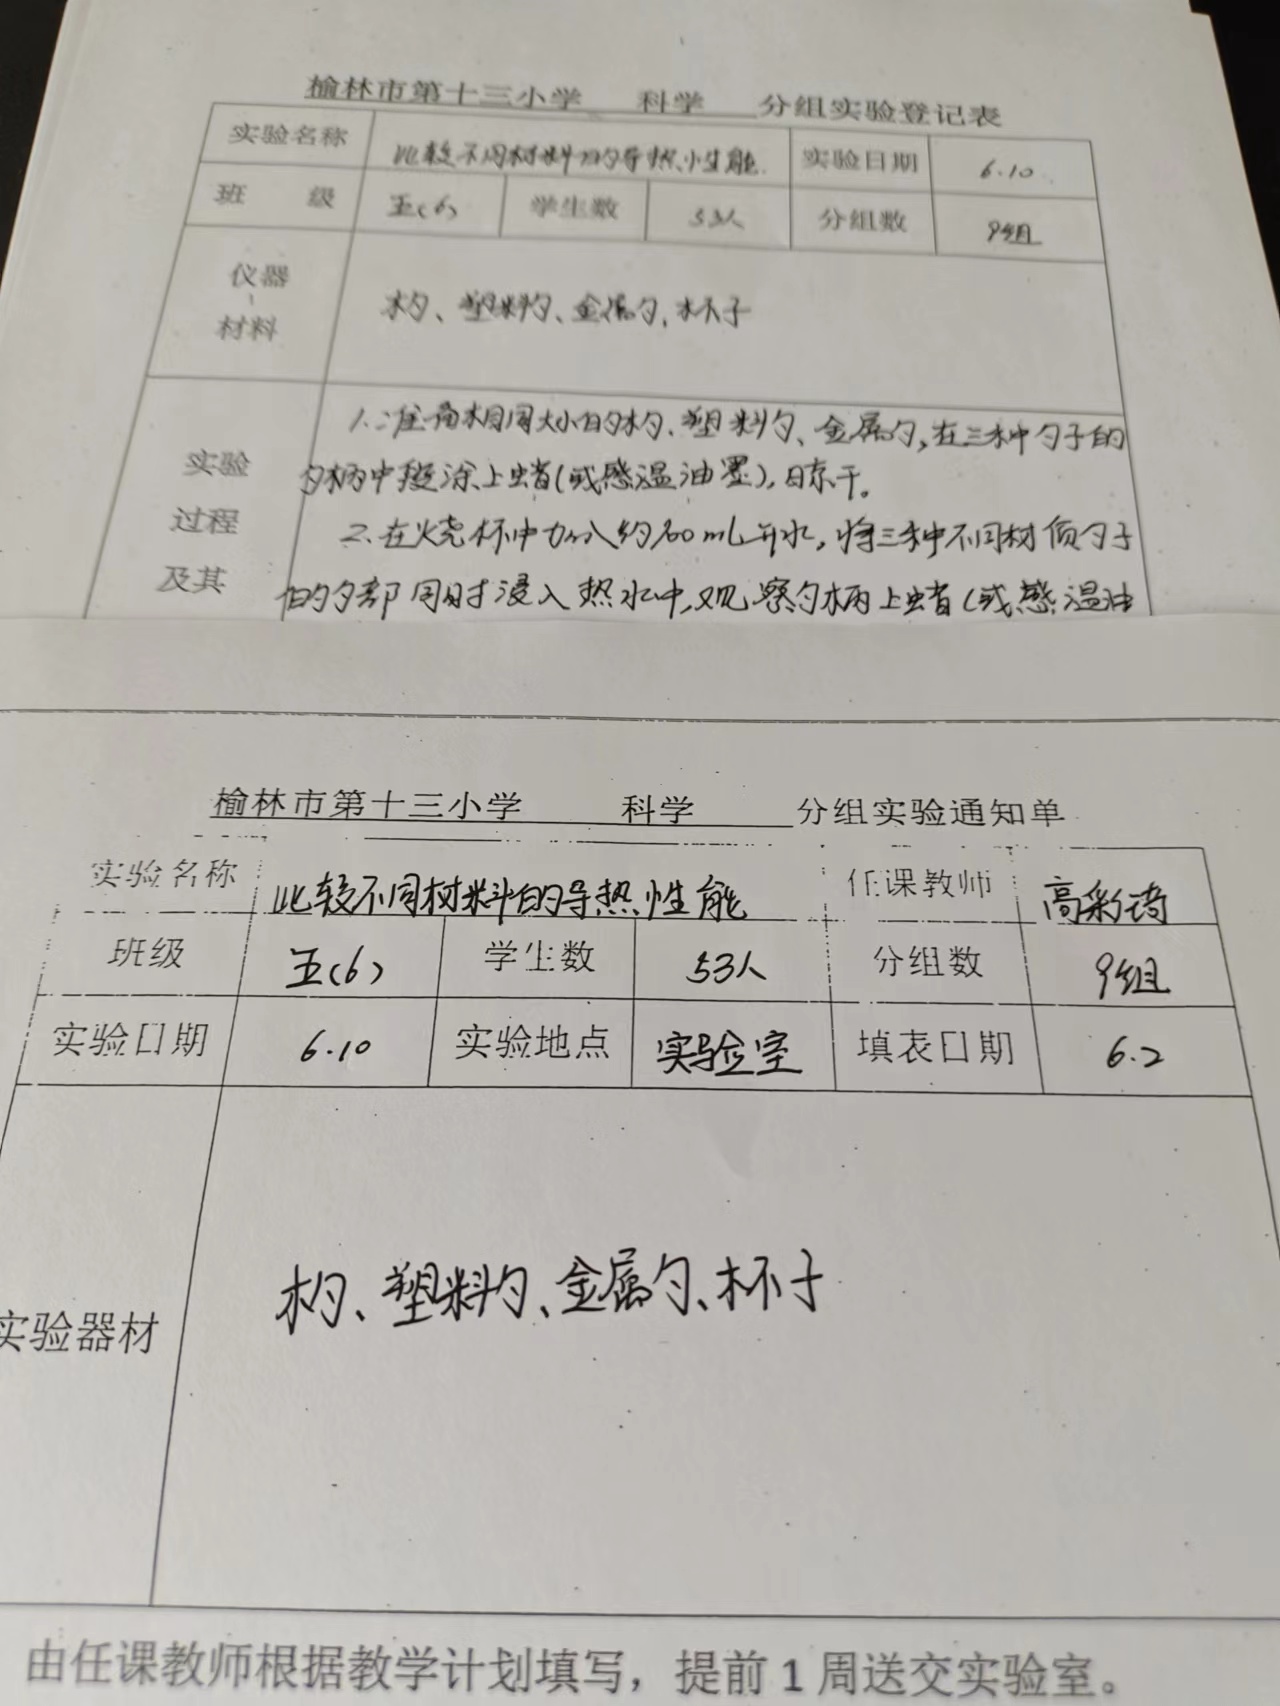 榆林市第十三小学 科学 分组实验登记表
实验名称 比较不同材料的导热性能 实验日期 6.10
班 级 五(6) 学生数 53人 分组数 9组
仪器
材料
木勺、塑料勺、金属勺、杯子
实验
过程
及其
1.准备相同大小的木勺、塑料勺、金属勺,在三种勺子的
勺柄中段涂上蜡(或感温油墨),晾干。
2.在烧杯中加入约 mL开水,将三种不同材质勺子
的勺部同时浸入热水中,观察勺柄上蜡(或感温油
榆林市第十三小学 科学 分组实验通知单
实验名称 比较不同材料的导热性能 任课教师 高彩琦
班级 五(6) 学生数 53人 分组数 9组
实验日期 6.10 实验地点 实验室 填表日期 6.2
实验器材 木勺、塑料勺、金属勺、杯子
由任课教师根据教学计划填写，提前1周送交实验室。